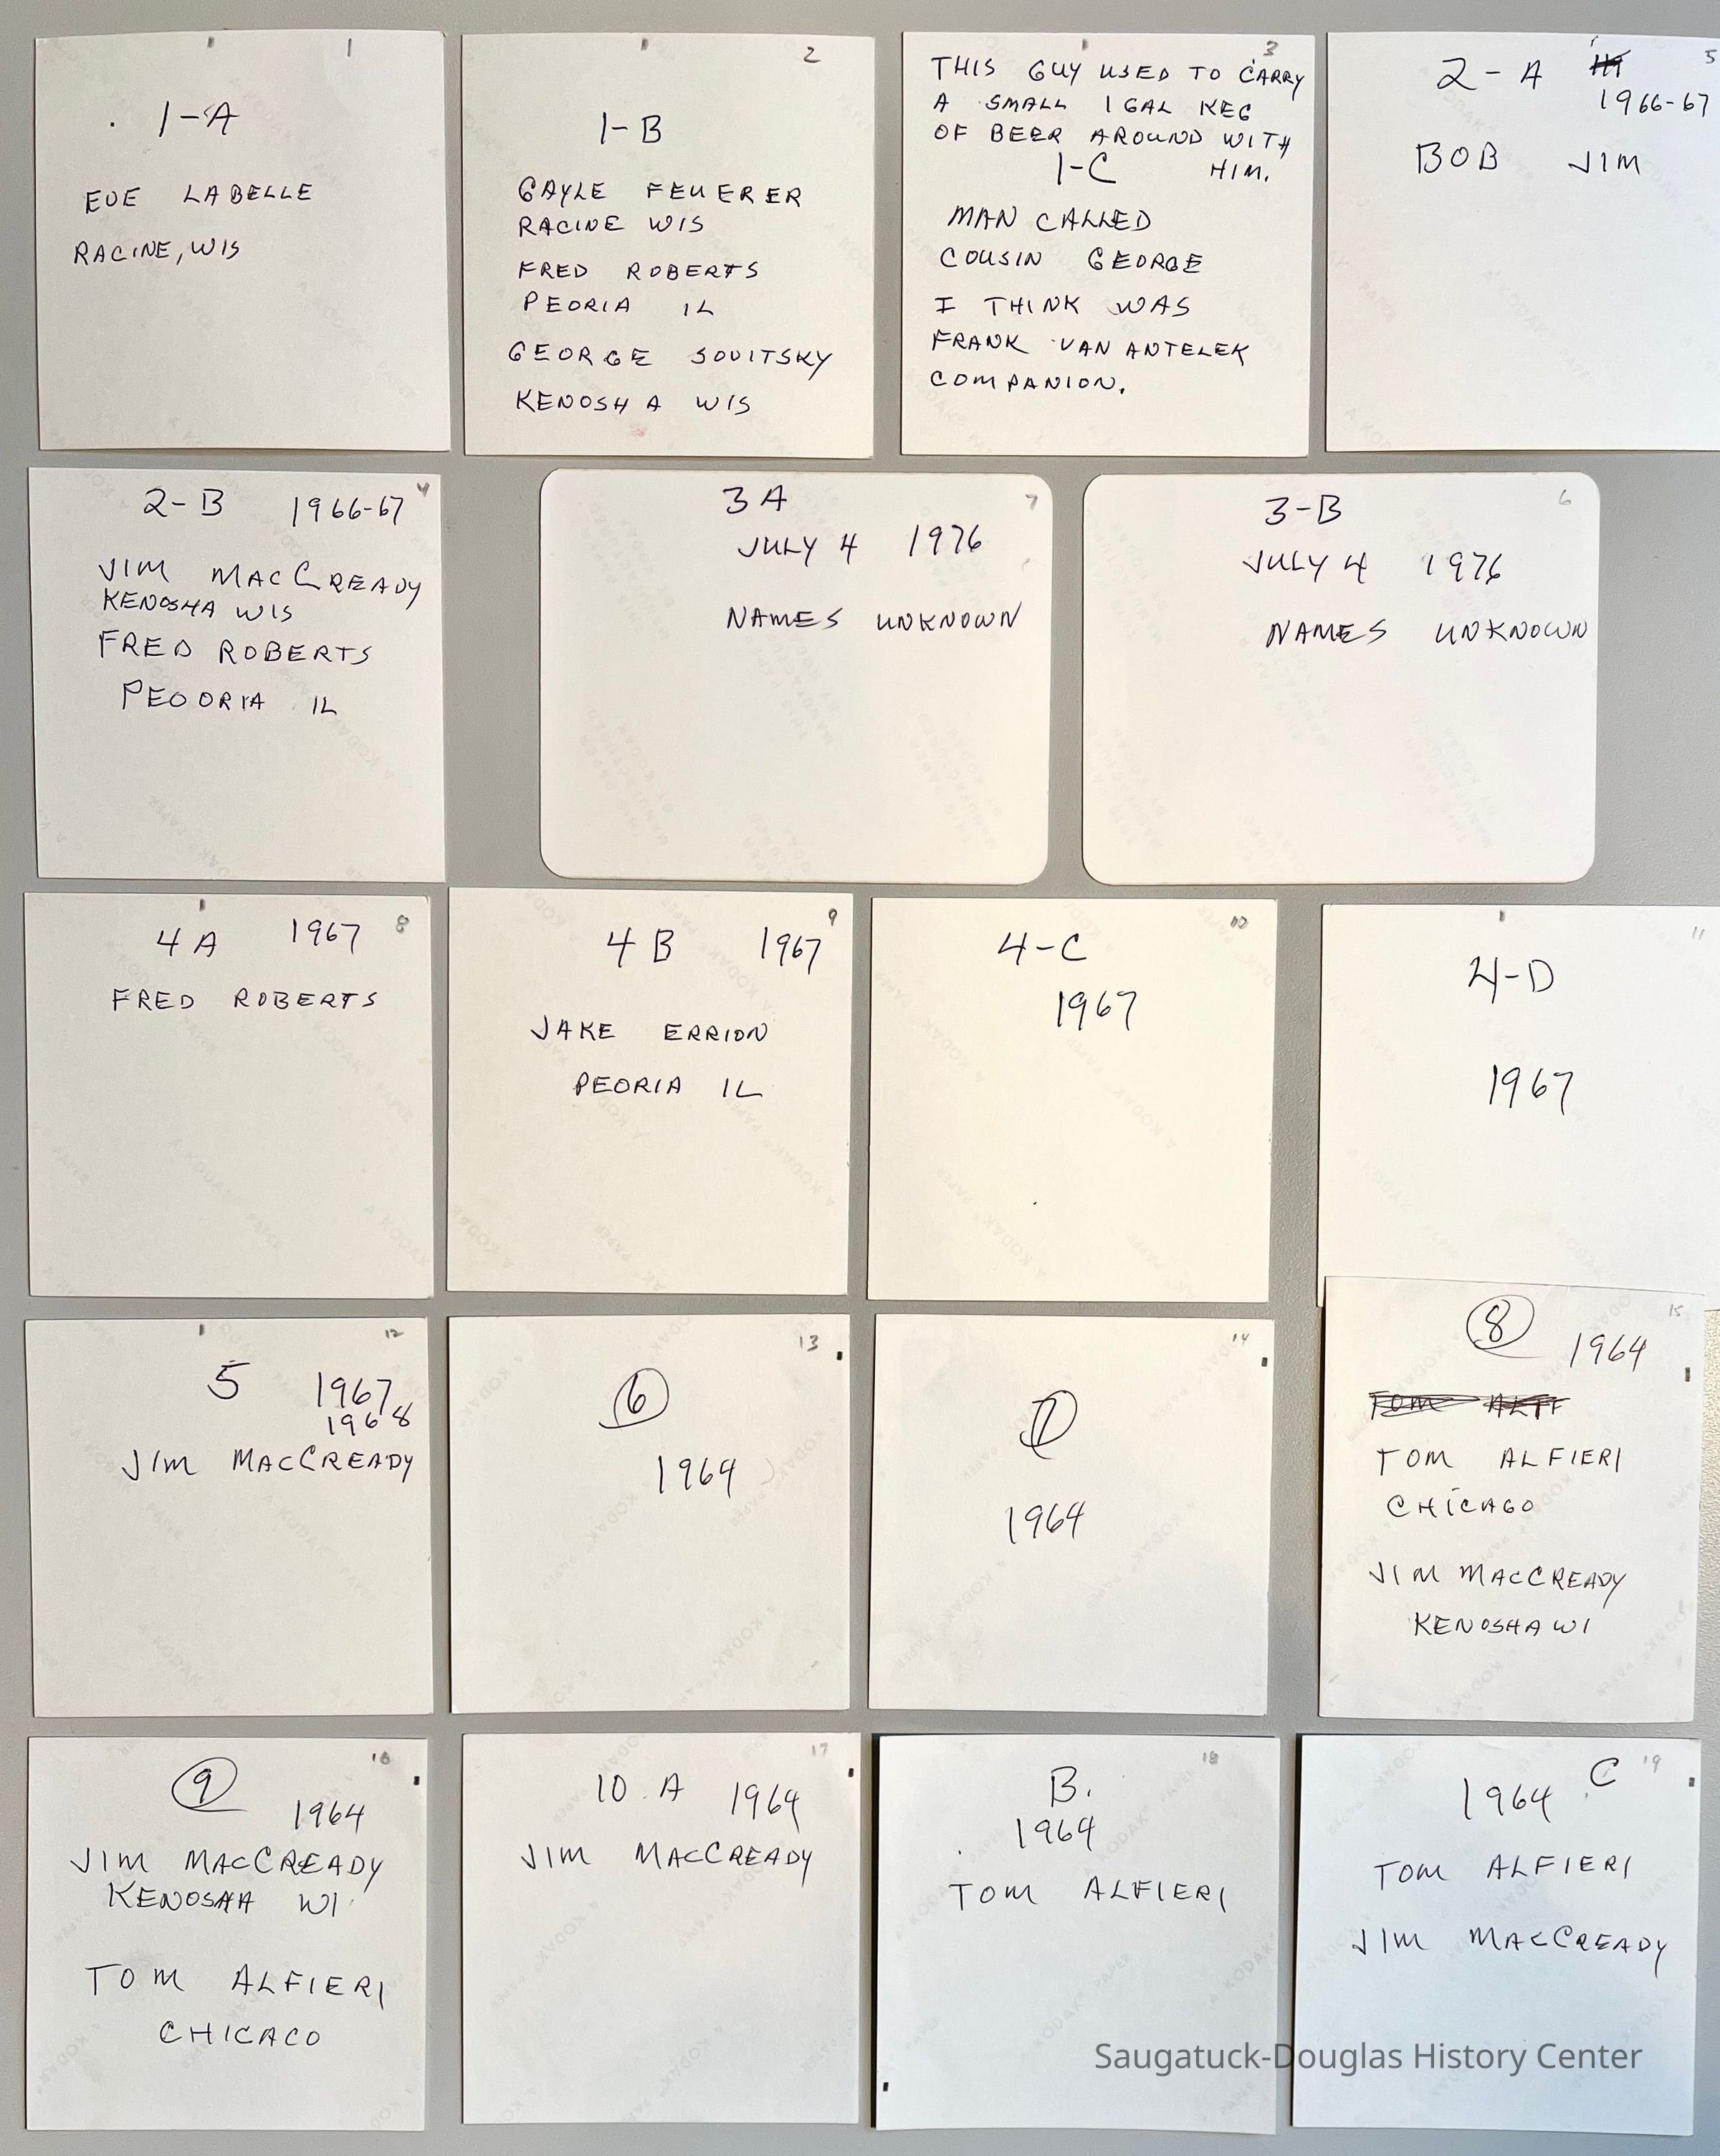 1
1-A
EVE LABELLE
RACINE, WIS
2
1-B
GAYLE FEUERER
RACINE WIS
FRED ROBERTS
PEORIA IL
GEORGE SOVITSKY
KENOSHA WIS
3
THIS GUY USED TO CARRY
A SMALL 1 GAL KEG
OF BEER AROUND WITH
1-C HIM.
MAN CALLED
COUSIN GEORGE
I THINK WAS
FRANK VAN ANTELEK
COMPANION.
5
2-A
1966-67
BOB JIM
4
2-B 1966-67
JIM MACCREADY
KENOSHA WIS
FRED ROBERTS
PEOORIA IL
7
3A
JULY 4 1976
NAMES UNKNOWN
6
3-B
JULY 4 1976
NAMES UNKNOWN
8
4A 1967
FRED ROBERTS
9
4B 1967
JAKE ERRION
PEORIA IL
10
4-C
1967
11
4-D
1967
12
5 1967
1968
JIM MACCREADY
13
6
1964
14
7
1964
15
8 1964
TOM ALFF
TOM ALFIERI
CHICAGO
JIM MACCREADY
KENOSHA WI
16
9
1964
JIM MACCREADY
KENOSHA WI
TOM ALFIERI
CHICACO
17
10 A 1964
JIM MACCREADY
18
B.
1964
TOM ALFIERI
19
1964 C
TOM ALFIERI
JIM MACCREADY
Saugatuck-Douglas History Center